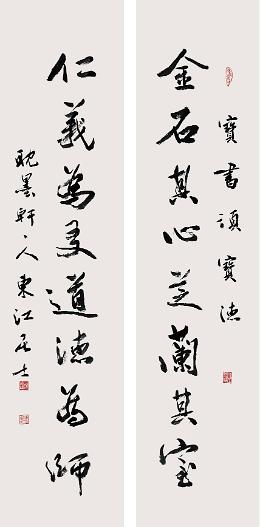 寶書頌寶德
金石其心芝蘭其室
仁義為友道德為師
耽墨軒主人東江居士